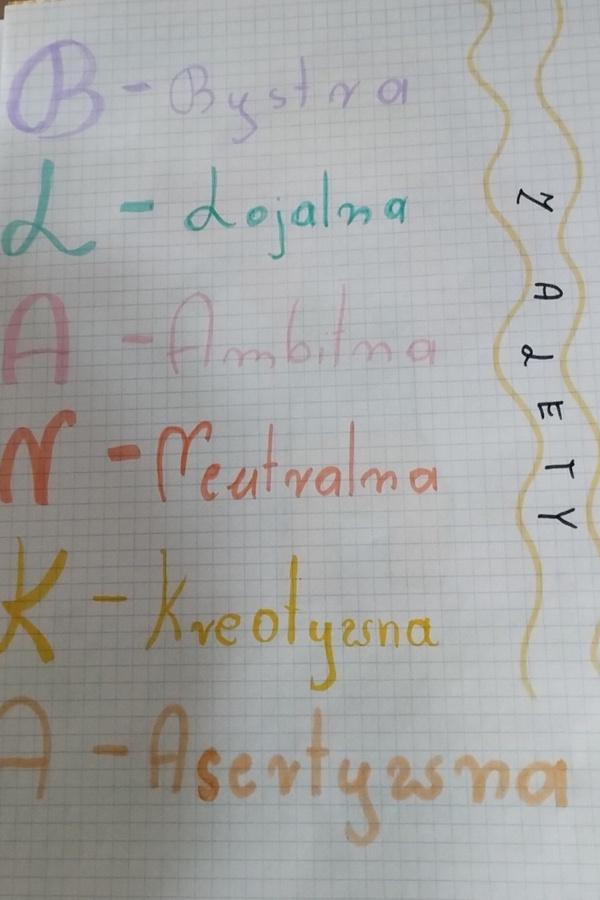 B - Bystra
L - Lojalna
A - Ambitna
N - Neutralna
K - Kreotyzsna
A - Asertyzsna
ZALETY